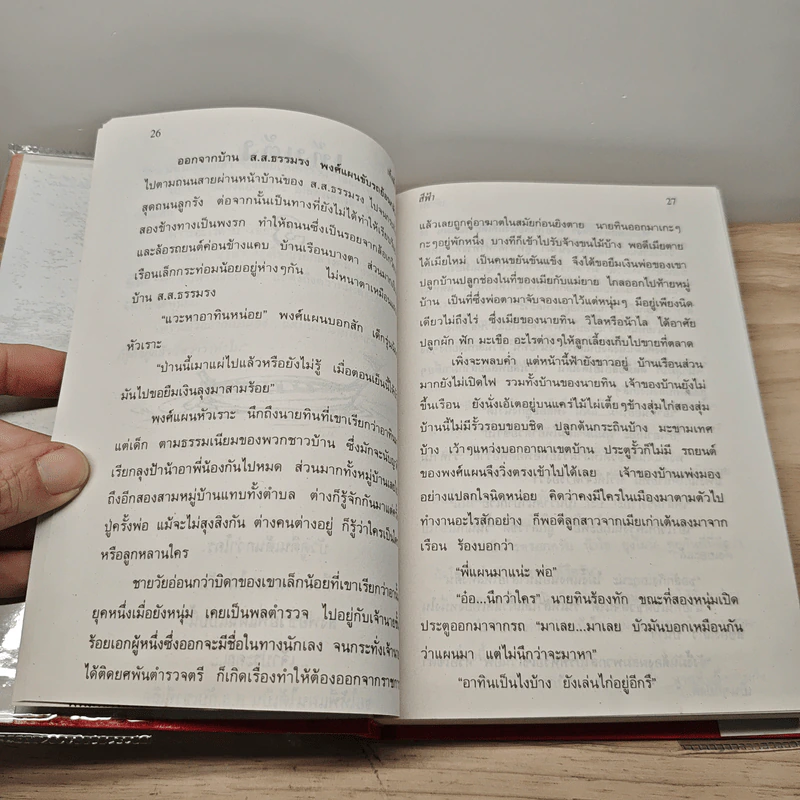 26
ออกจากบ้าน ส.ส.ธรรมรง พงศ์แผนขับรถ
ไปตามถนนสายผ่านหน้าบ้านของ ส.ส.ธรรมรง
สุดถนนลูกรัง ต่อจากนั้นเป็นทางที่ยังไม่ได้ทำให้
สองข้างทางเป็นพงรก ทำให้ถนนซึ่งเป็นรอยจาก
และล้อรถยนต์ค่อนข้างแคบ บ้านเรือนบางตา
เรือนเล็กกระท่อมน้อยอยู่ห่างๆกัน ไม่หนาตา
บ้าน ส.ส.ธรรมรง
"แวะหาอาทินหน่อย" พงศ์แผนบอกสัก
หัวเราะ
"ป่านนี้เมาแผ่ไปแล้วหรือยังไม่รู้ เมื่อตอนเย็นนี้
มันไปขอยืมเงินลุงมาสามร้อย"
พงศ์แผนหัวเราะ นึกถึงนายทินที่เขาเรียกว่า
แต่เด็ก ตามธรรมเนียมของพวกชาวบ้าน ซึ่งมัก
เรียกลุงป้าน้าอาพี่น้องกันไปหมด ส่วนมากทั้งหมู่บ้าน
ถึงอีกสองสามหมู่บ้านแทบทั้งตำบล ต่างก็รู้จักกันมา
ปู่ครั้งพ่อ แม้จะไม่สุงสิงกัน ต่างคนต่างอยู่ ก็รู้ว่าใคร
หรือลูกหลานใคร
ชายวัยอ่อนกว่าบิดาของเขาเล็กน้อยที่เขาเรียกว่า
ยุคหนึ่งเมื่อยังหนุ่ม เคยเป็นพลตำรวจ ไปอยู่กับเจ้านาย
ร้อยเอกผู้หนึ่งซึ่งออกจะมีชื่อในทางนักเลง จนกระทั่ง
ได้ติดยศพันตำรวจตรี ก็เกิดเรื่องทำให้ต้องออกจาก
สีฟ้า
27
แล้วเลยถูกคู่อาฆาตในสมัยก่อนยิงตาย นายทินออกมาเกะๆ
กะๆอยู่พักหนึ่ง บางทีก็เข้าไปรับจ้างขนไม้บ้าง พอดีเมียตาย
ได้เมียใหม่ เป็นคนขยันขันแข็ง จึงได้ขอยืมเงินพ่อของเขา
ปลูกบ้านปลูกช่องในที่ของเมียกับแม่ยาย ไกลออกไปท้ายหมู่
บ้าน เป็นที่ซึ่งพ่อตามาจับจองเอาไว้แต่หนุ่มๆ มีอยู่เพียงนิด
เดียวไม่ถึงไร่ ซึ่งเมียของนายทิน วิไลหรือน้าไล ได้อาศัย
ปลูกผัก ฟัก มะเขือ อะไรต่างๆให้ลูกเลี้ยงเก็บไปขายที่ตลาด
เพิ่งจะพลบค่ำ แต่หน้านี้ฟ้ายังขาวอยู่ บ้านเรือนส่วน
มากยังไม่เปิดไฟ รวมทั้งบ้านของนายทิน เจ้าของบ้านยังไม่
ขึ้นเรือน ยังนั่งเอ้เตอยู่บนแคร่ไม้ไผ่เตี้ยๆข้างสุ่มไก่สองสุ่ม
บ้านนี้ไม่มีรั้วรอบขอบชิด ปลูกต้นกระถินบ้าง มะขามเทศ
บ้าง เว้าๆแหว่งบอกอาณาเขตบ้าน ประตูรั้วก็ไม่มี รถยนต์
ของพงศ์แผนจึงวิ่งตรงเข้าไปได้เลย เจ้าของบ้านเพ่งมอง
อย่างแปลกใจนิดหน่อย คิดว่าคงมีใครในเมืองมาตามตัวไป
ทำงานอะไรสักอย่าง ก็พอดีลูกสาวจากเมียเก่าเต้นลงมาจาก
เรือน ร้องบอกว่า
"พี่แผนมาแน่ะ พ่อ"
"อ๋อ...นึกว่าใคร" นายทินร้องทัก ขณะที่สองหนุ่มเปิด
ประตูออกมาจากรถ "มาเลย...มาเลย บัวมันบอกเหมือนกัน
ว่าแผนมา แต่ไม่นึกว่าจะมาหา"
"อาทินเป็นไงบ้าง ยังเล่นไก่อยู่อีกรึ"